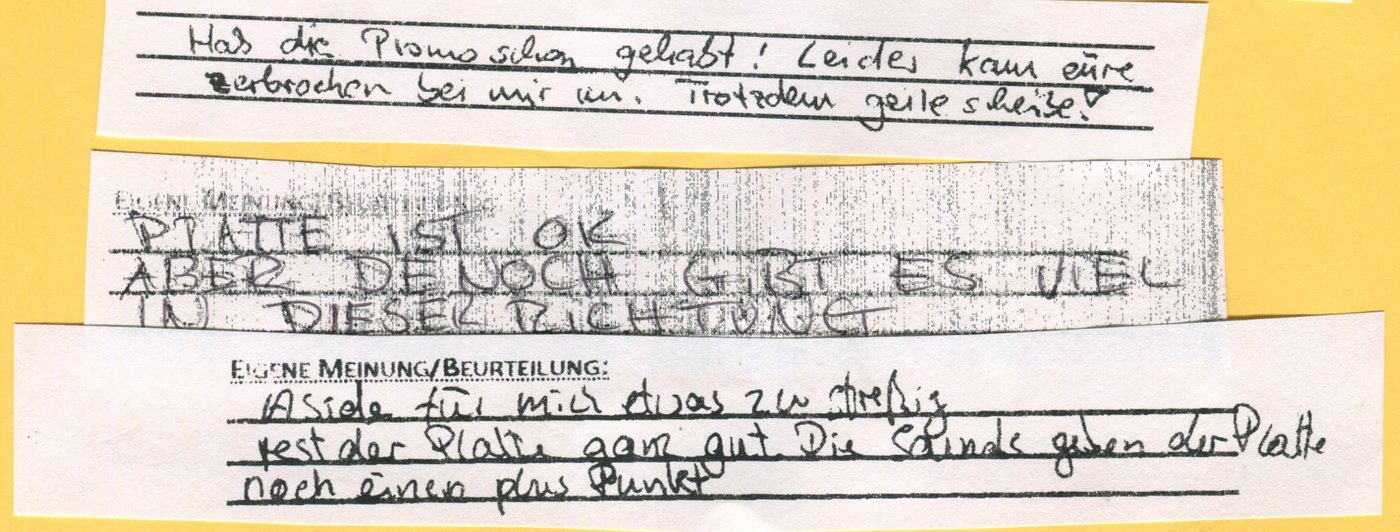 Hab die Promo schon gehabt! Leider kam eure
zerbrochen bei mir an. Trotzdem geile scheiße!
EIGENE MEINUNG/BEURTEILUNG:
PLATTE IST OK
ABER DENOCH GIBT ES VIEL
IN DIESER RICHTUNG
EIGENE MEINUNG/BEURTEILUNG:
Aside für mich etwas zu streßig
rest der Platte ganz gut. Die Sounds geben der Platte
noch einen plus Punkt